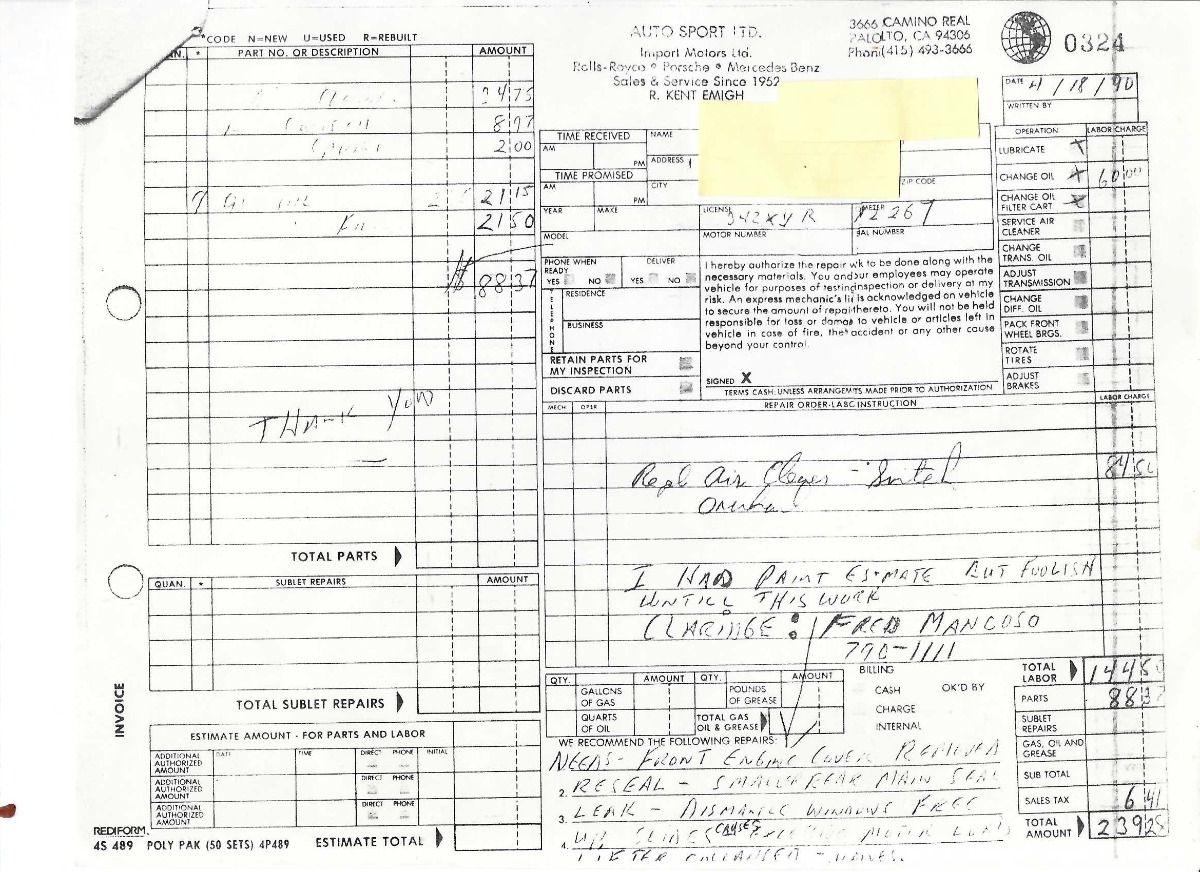 *CODE N=NEW U=USED R=REBUILT
AN. * PART NO. OR DESCRIPTION AMOUNT
24 75
8 97
2 00
9 21 15
21 50
$ 88 37
THANK YOU
TOTAL PARTS
QUAN. * SUBLET REPAIRS AMOUNT
TOTAL SUBLET REPAIRS
INVOICE
ESTIMATE AMOUNT - FOR PARTS AND LABOR
ADDITIONAL AUTHORIZED AMOUNT DATE TIME DIRECT PHONE INITIAL
ADDITIONAL AUTHORIZED AMOUNT DIRECT PHONE
ADDITIONAL AUTHORIZED AMOUNT DIRECT PHONE
REDIFORM.
4S 489 POLY PAK (50 SETS) 4P489 ESTIMATE TOTAL
AUTO SPORT LTD.
Import Motors Ltd.
Rolls-Royce • Porsche • Mercedes Benz
Sales & Service Since 1952
R. KENT EMIGH
3666 CAMINO REAL
PALO LTO, CA 94306
Phon (415) 493-3666
0324
DATE 4/18/90
WRITTEN BY
TIME RECEIVED NAME
AM PM ADDRESS
TIME PROMISED
AM PM CITY ZIP CODE
YEAR MAKE LICENSE 342XYR METER 12267
MODEL MOTOR NUMBER IAL NUMBER
PHONE WHEN READY DELIVER
YES NO YES NO
TELEPHONE
RESIDENCE
BUSINESS
RETAIN PARTS FOR MY INSPECTION
DISCARD PARTS
I hereby authorize the repair wk to be done along with the
necessary materials. You and/or employees may operate
vehicle for purposes of testing, inspection or delivery at my
risk. An express mechanic's li is acknowledged on vehicle
to secure the amount of repai thereto. You will not be held
responsible for loss or damas to vehicle or articles left in
vehicle in case of fire, thet accident or any other cause
beyond your control.
SIGNED X
TERMS CASH, UNLESS ARRANGEMTS MADE PRIOR TO AUTHORIZATION
OPERATION LABOR CHARGE
LUBRICATE X
CHANGE OIL X 60 00
CHANGE OIL FILTER CART. X
SERVICE AIR CLEANER
CHANGE TRANS. OIL
ADJUST TRANSMISSION
CHANGE DIFF. OIL
PACK FRONT WHEEL BRGS.
ROTATE TIRES
ADJUST BRAKES
MECH OPER REPAIR ORDER-LABC INSTRUCTION LABOR CHARGE
Repl Air 84 50
I HAD PAINT ESTIMATE BUT FOOLISH
UNTILL THIS WORK
: FRED MANCOSO
790-1111
QTY. AMOUNT QTY. AMOUNT
GALLONS OF GAS POUNDS OF GREASE
QUARTS OF OIL TOTAL GAS OIL & GREASE
BILLING
CASH OK'D BY
CHARGE
INTERNAL
TOTAL LABOR 144 50
PARTS 88 37
SUBLET REPAIRS
GAS, OIL AND GREASE
SUB TOTAL
SALES TAX 6 41
TOTAL AMOUNT 239 28
WE RECOMMEND THE FOLLOWING REPAIRS:
NEEDS - FRONT ENGINE COVER REMOVED
2. RESEAL - SMALL REAR MAIN SEAL
3. LEAK - DISMANTLE WINDOWS FREE
4. CAUSES MOTOR
LIFTER COLLAPSED - VALVES.